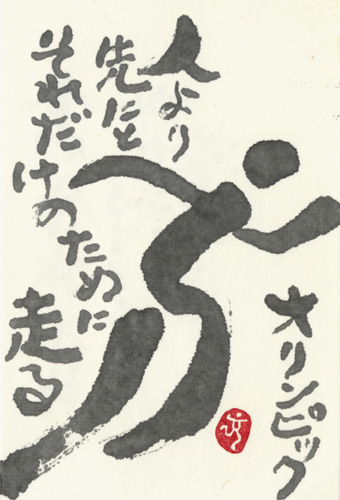 人より
先にと
それだけのために
走る
オリンピック